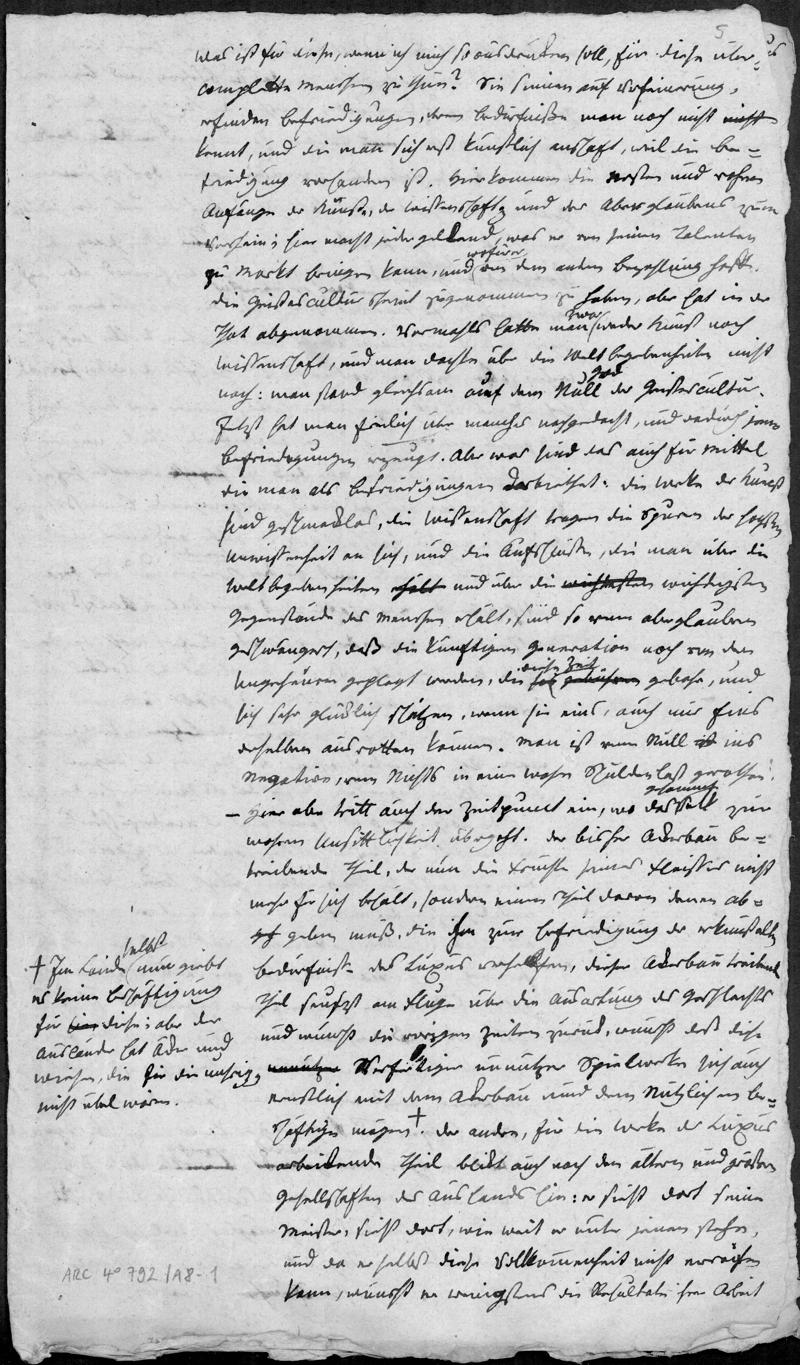 5
was ist für diese, wenn ich mich so ausdrucken soll, für diese über-
complette Menschen zu thun? Sie sinnen auf Verfeinerung,
erfinden Befriedigungen, deren Bedürfniße man noch nicht
kennt, und die man sich erst künstlich anschaft, weil die Be-
friedigung vorhanden ist. Hier kommen die ersten und rohen
Anfänge der Künste, der Wissenschaften und des Aberglaubens zum
Vorschein; hier macht jeder geltend, was er von seinen Talenten
zu Markt bringen kann, und wofür er von dem andern Bezahlung hofft.
Die Geistescultur scheint zugenommen zu haben, aber hat in der
That abgenommen. Vormahls hatte man zwar weder Kunst noch
Wissenschaft, und man dachte über die Weltbegebenheiten nicht
nach: man stand gleichsam auf dem Null der Geistescultur.
Jetzt hat man freilich über manches nachgedacht, und dadurch jene
Befriedigungen erzeugt. Aber was sind das auch für Mittel
die man als Befriedigungen darbiethet: die Werke der Kunst
sind geschmacklos, die Wissenschaft tragen die Spuren der hochsten
Unwissenheit an sich, und die Aufschlüsse, die man über die
Weltbegebenheiten erhält und über die wichtigsten
Gegenstände des Menschen erhält, sind so vom Aberglauben
geschwängert, daß die künftigen Generation noch von den
Ungeheuern geplagt werden, die diese Zeit gebahr, und
sich sehr glücklich schätzen, wenn sie eins, auch nur eins
derselben ausrotten können. Man ist vom Null ins
Negative, vom Nichts in eine wahre Schuldenlast gerathen.
– Hier aber tritt auch der Zeitpunct ein, wo das Volk zur
wahren Unsittlichkeit übergeht. Der bisher Ackerbau be-
treibende Theil, der nun die Früchte seines Fleisses nicht
mehr für sich behält, sondern einen Theil davon denen ab-
geben muß, die ihm zur Befriedigung der erkünstelten
Bedürfniße des Luxus verhelfen, dieser Ackerbau treibende
Theil seufzt am Pfluge über die Ausartung des Geschlechts
und wünscht die vorigen Zeiten zurück, wünscht daß diese
Verfertiger unnützer Spielwerke sich auch
ernstlich mit dem Ackerbau und dem Nützlichen be-
schäftigen mögen †. Der andere, für die Werke des Luxus
arbeitende Theil blickt auch nach den ältern und größern
Gesellschaften des Auslands hin: er sieht dort seine
Meister, sieht dort, wie weit er unter jenen stehe,
und da er selbst diese Vollkommenheit nicht erreichen
kann, wünscht er wenigstens die Resultate ihrer Arbeit
† Im Lande selbst nun giebt
es keine Beschäftigung
für diese; aber der
Ausländer hat Äcker und
Wiesen, die für die unsrigen
nicht übel wären.
ARC 4° 792/A8-1